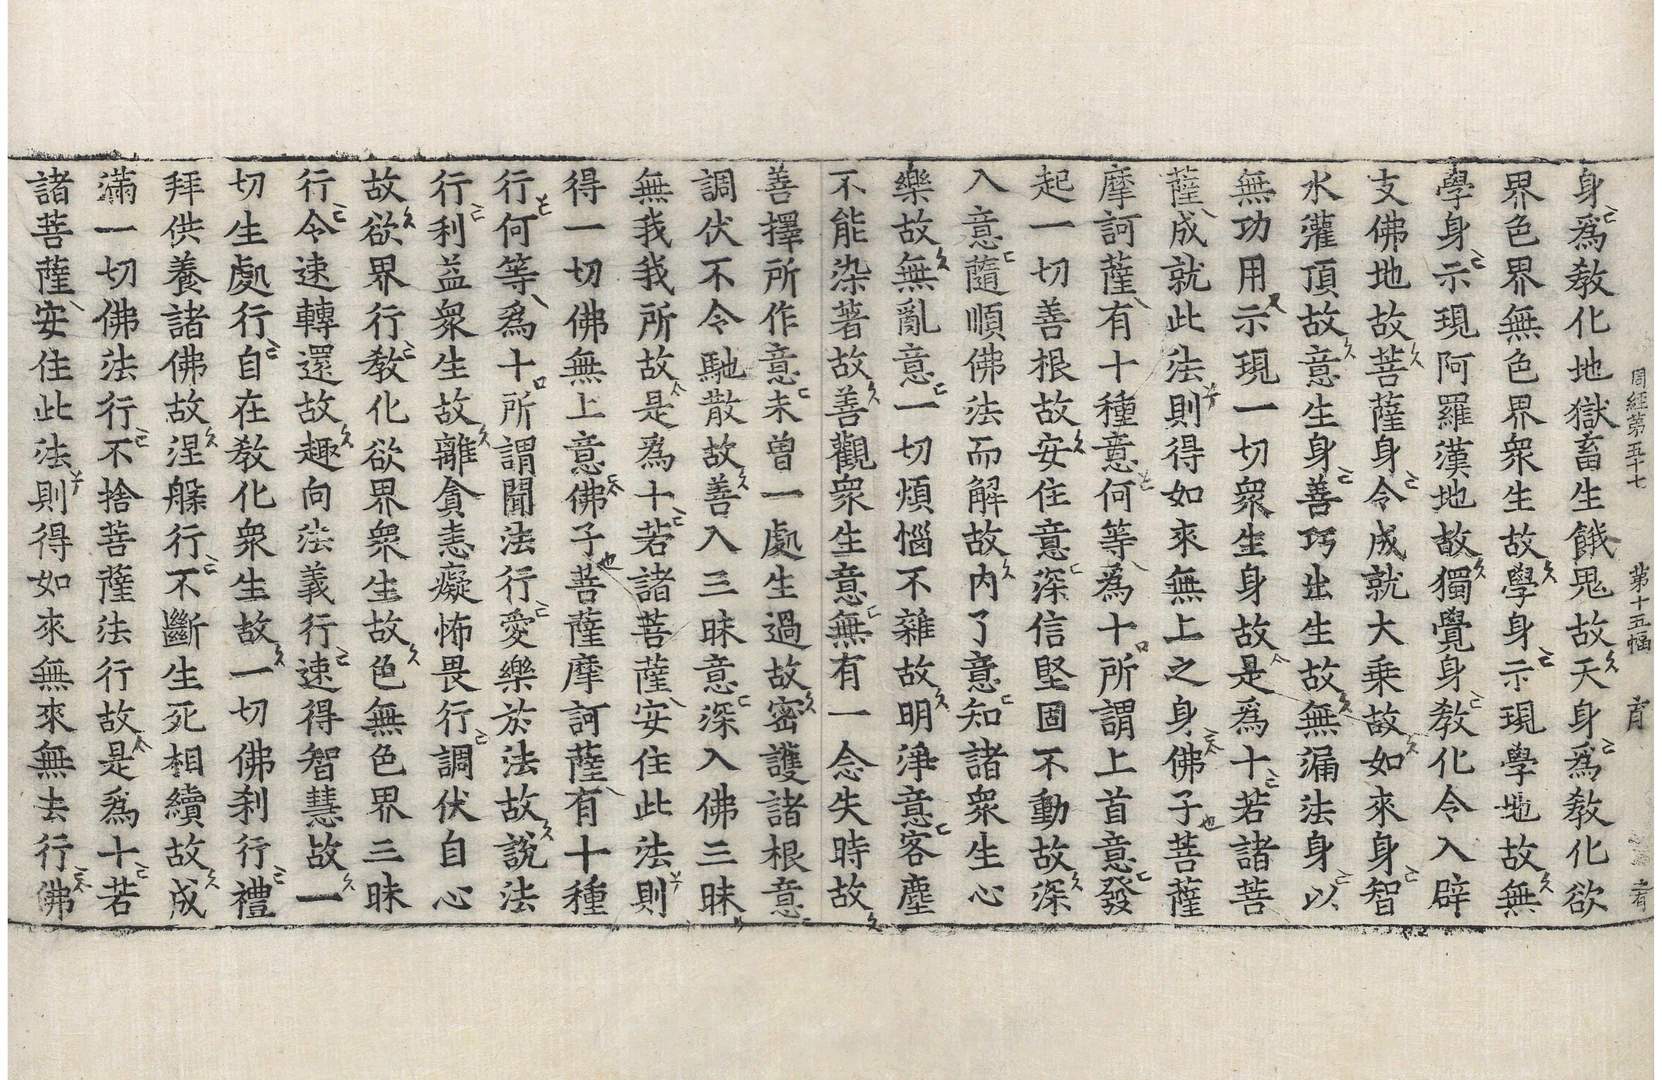 周經第五十七　第十五幅
身為教化地獄畜生餓鬼故天身為教化欲
界色界無色界眾生故學身示現學地故無
學身示現阿羅漢地故獨覺身教化令入辟
支佛地故菩薩身令成就大乘故如來身智
水灌頂故意生身善巧出生故無漏法身以
無功用示現一切眾生身故是為十若諸菩
薩成就此法則得如來無上之身佛子菩薩
摩訶薩有十種意何等為十所謂上首意發
起一切善根故安住意深信堅固不動故深
入意隨順佛法而解故內了意知諸眾生心
樂故無亂意一切煩惱不雜故明淨意客塵
不能染著故善觀眾生意無有一念失時故
善擇所作意未曾一處生過故密護諸根意
調伏不令馳散故善入三昧意深入佛三昧
無我我所故是為十若諸菩薩安住此法則
得一切佛無上意佛子菩薩摩訶薩有十種
行何等為十所謂聞法行愛樂於法故說法
行利益眾生故離貪恚癡怖畏行調伏自心
故欲界行教化欲界眾生故色無色界三昧
行令速轉還故趣向法義行速得智慧故一
切生處行自在教化眾生故一切佛剎行禮
拜供養諸佛故涅槃行不斷生死相續故成
滿一切佛法行不捨菩薩法行故是為十若
諸菩薩安住此法則得如來無來無去行佛